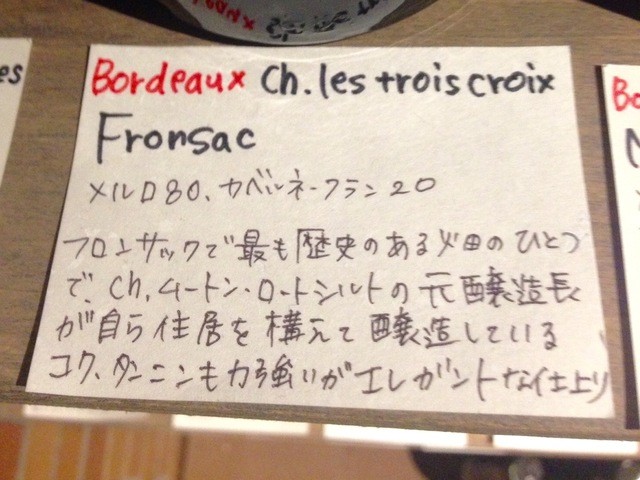 Bordeaux Ch. les trois croix
Fronsac
メルロ80、カベルネ・フラン20
フロンサックで最も歴史のある畑のひとつ
で、Ch.ムートン・ロートシルトの元醸造長
が自ら住居を構えて醸造している
コク、タンニンも力強いがエレガントな仕上り
es
Bo